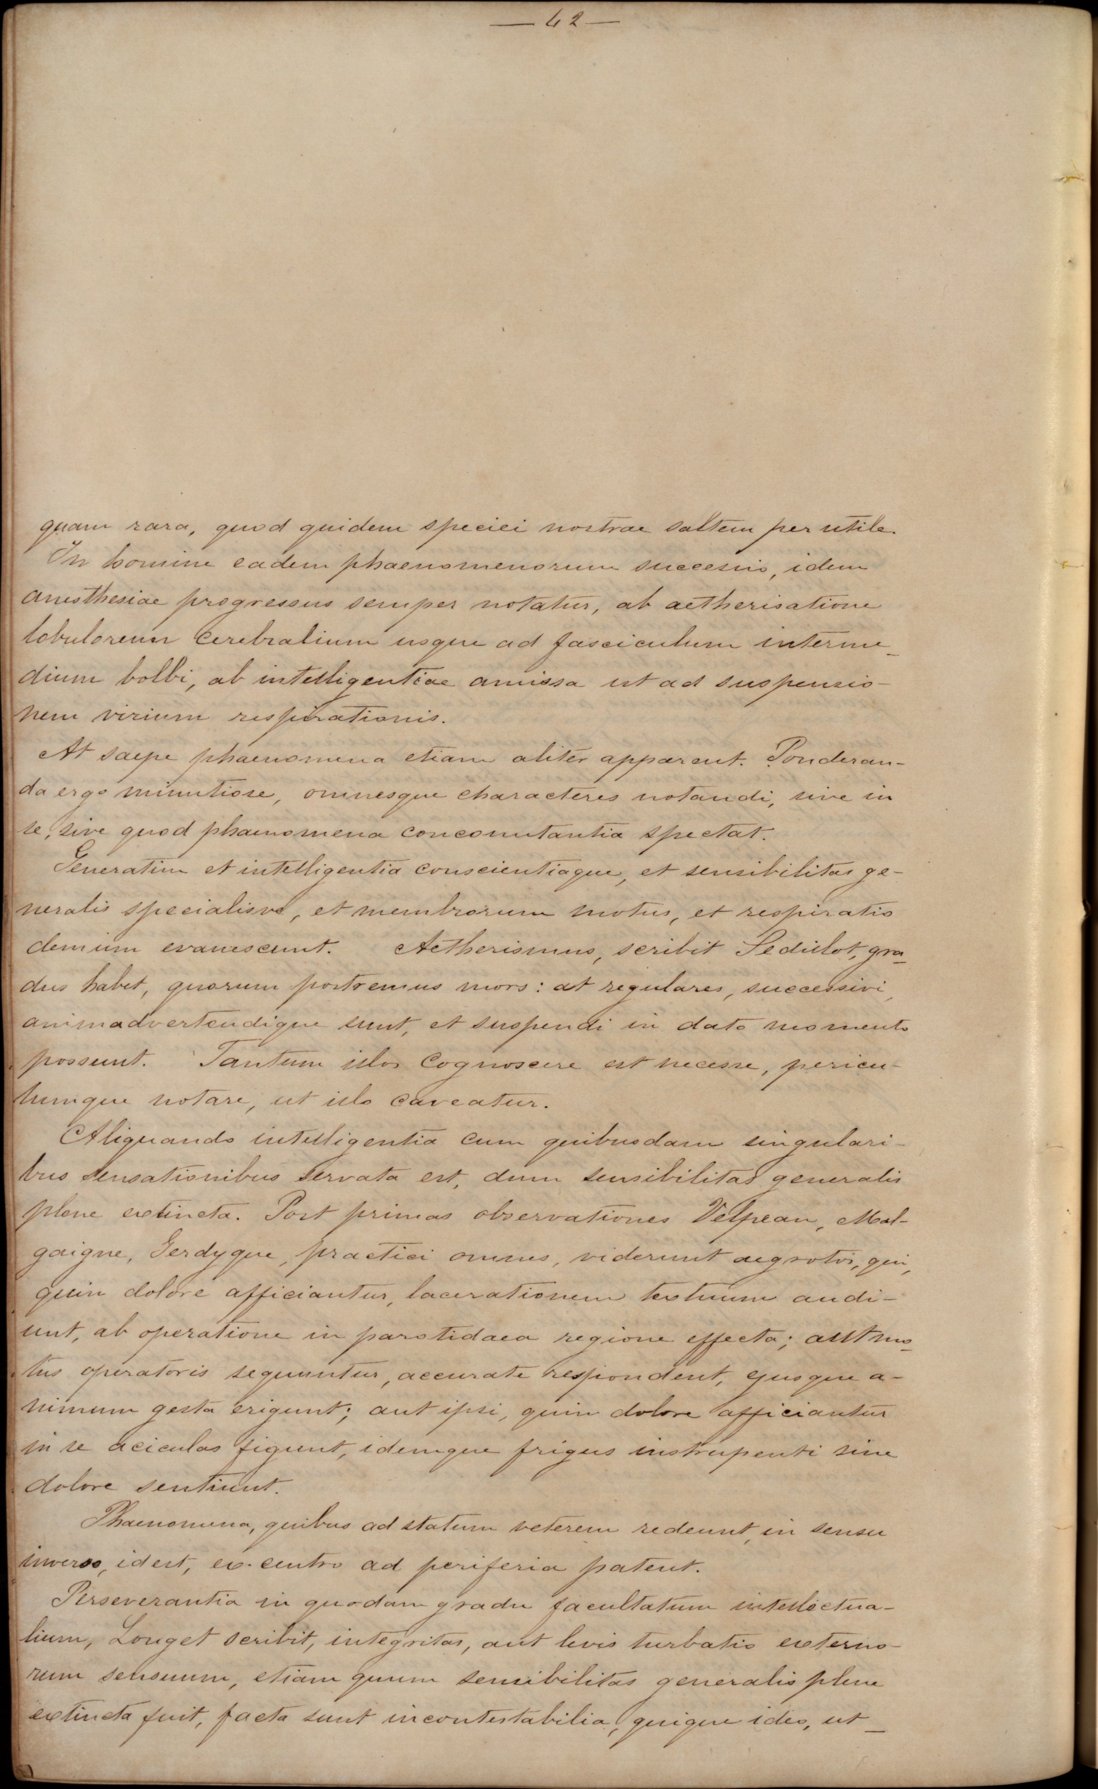 — 42 —
quam rara, quod quidem speciei nostrae saltem per utile.
In homine eadem phaenomenorum succesio, idem
anesthesiae progressus semper notatur, ab aetherisatione
lobulorum cerebralium usque ad fasciculum interme-
dium bolbi, ab intelligentiae amissa ut ad suspensio-
nem virium respirationis.
At saepe phaenomena etiam aliter apparent. Ponderan-
da ergo minutiose, omnesque characteres notandi, sive in
se, sive quod phaenomena concomitantia spectat.
Generatim et intelligentia conscientiaque, et sensibilitas ge-
neralis specialisve, et membrorum motus, et respiratio
demum evanescunt. Aetherismus, scribit Sedillot, gra-
dus habet, quorum postremus mors: at regulares, successivi,
animadvertendique sunt, et suspendi in dato momento
possunt. Tantum illos cognoscere est necesse, pericu-
lumque notare, ut illo caveatur.
Aliquando intelligentia cum quibusdam singulari-
bus sensationibus servata est, dum sensibilitas generalis
plene extincta. Post primas observationes Velpeau, Mal-
gaigne, Gerdyque, practici omnes, viderunt aegrotos, qui,
quin dolore afficiantur, lacerationem textuum audi-
unt, ab operatione in parotidaea regione effecta; aut mo-
tus operatoris sequuntur, accurate respondent, ejusque a-
nimum gesta erigunt; aut ipsi, quin dolore afficiantur
in se aciculas figunt, idemque frigus instrupenti sine
dolore sentiunt.
Phaenomena, quibus ad statum veterem redeunt, in sensu
inverso, id est, ex centro ad periferia patent.
Perseverantia in quodam gradu facultatum intellectua-
lium, Longet scribit, integritas, aut levis turbatio externo-
rum sensuum, etiam quum sensibilitas generalis plene
extincta fuit, facta sunt incontestabilia, quique ideo, ut-